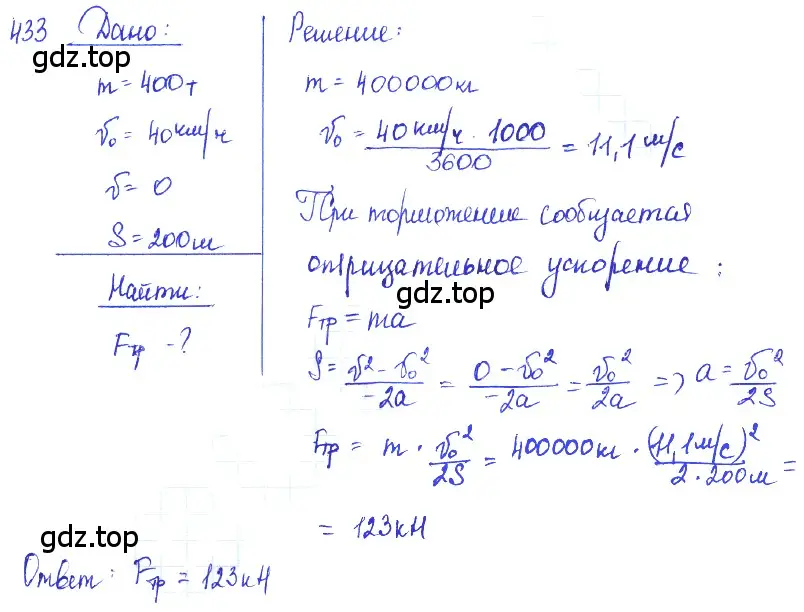 433 Дано:
gdz.top
m = 400т
v₀ = 40 км/ч
v = 0
S = 200м
Найти:
Fтр - ?
Решение:
m = 400000 кг
v₀ = 40 км/ч · 1000 / 3600 = 11,1 м/с
При торможение сообщается
отрицательное ускорение:
gdz.top
Fтр = ma
S = v² - v₀² / -2a = 0 - v₀² / -2a = v₀² / 2a => a = v₀² / 2S
Fтр = m · v₀² / 2S = 400000 кг · (11,1 м/с)² / 2 · 200м =
= 123 кН
gdz.top
Ответ: Fтр = 123 кН